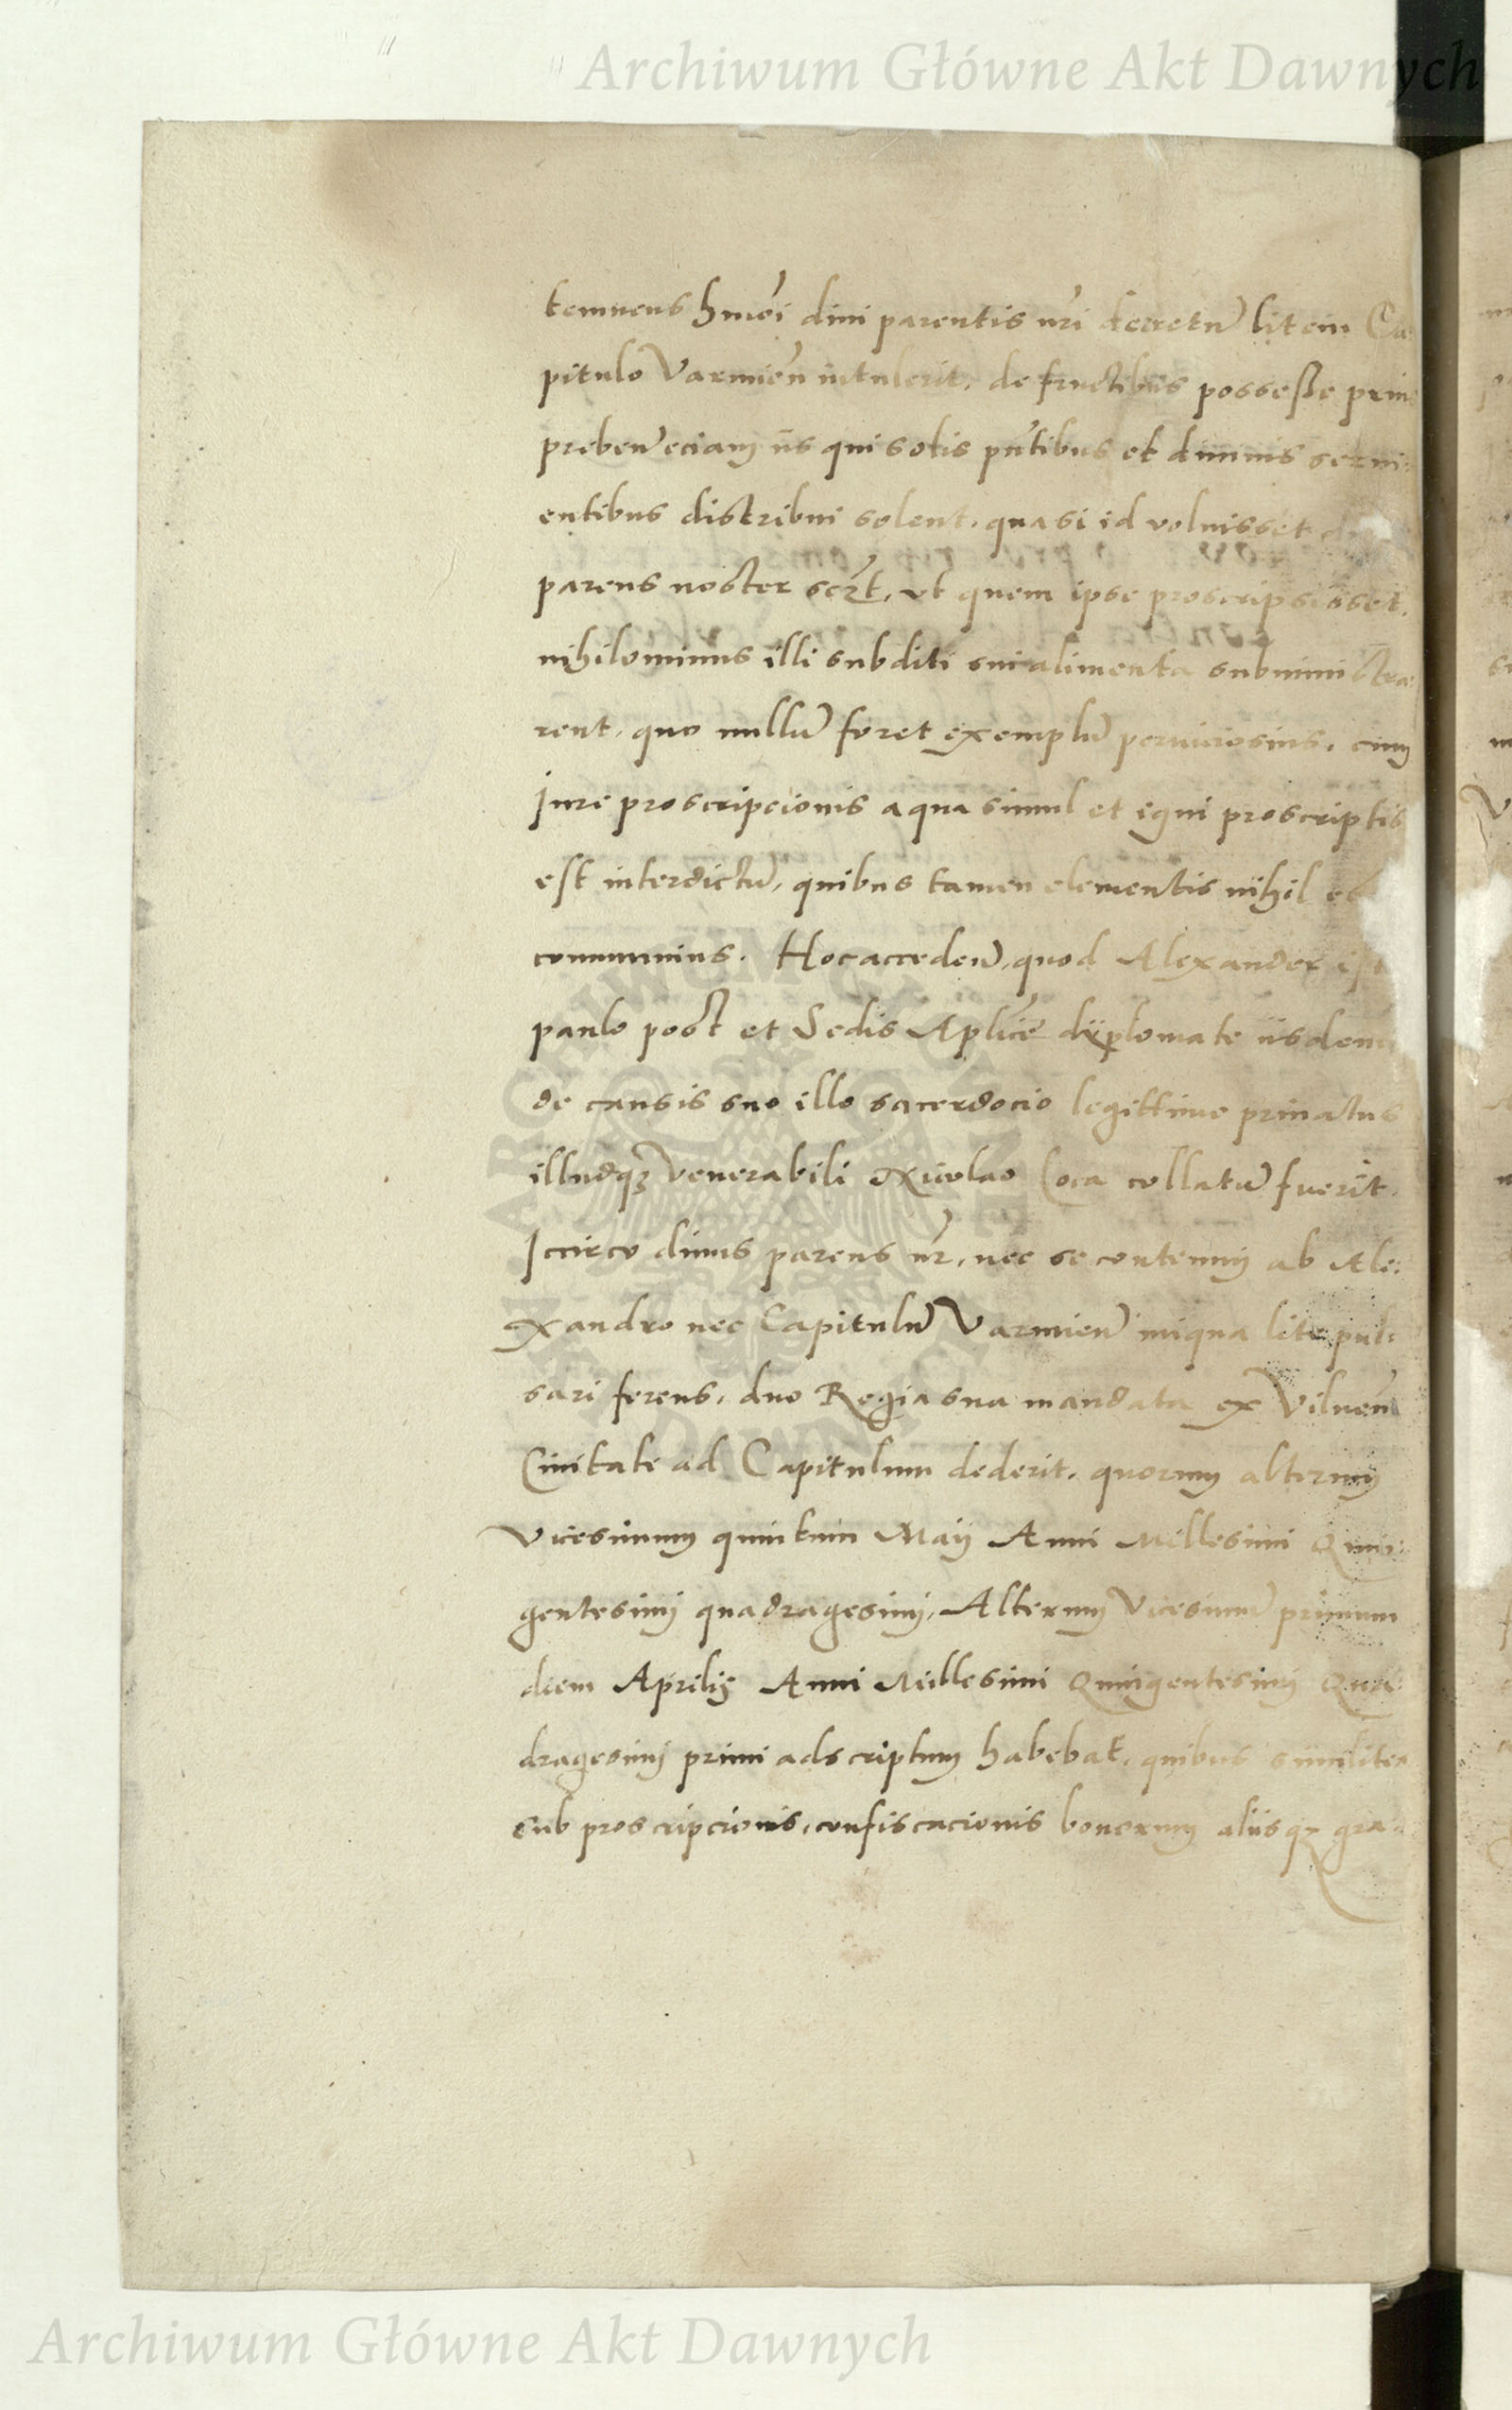 Archiwum Główne Akt Dawnych
temnens hmoi diui parentis nri decretu litem Ca
pitulo Varmien intulerit, de fructibus possesse
preben eciam iis qui solis pntibus et diuinis serui:
entibus distribui solent, quasi id voluisset
parens noster scżt, vt quem ipse proscripsisset,
nihilominus illi subditi sui alimenta subministra:
rent, quo nullu foret exemplu perniciosius, cum
Iure proscripcionis aqua simul et igni proscriptis
est interdictu, quibus tamen elementis nihil
communius. Hoc acceden, quod Alexander
paulo post et Sedis Aplice dyplomate iisdem
de causis suo illo sacerdocio legittime priuatus
illudq3 venerabili Nicolao Loca collatu fuerit.
Iccirco diuus parens nr, nec se contemni ab Ale:
xandro nec Capitulu Varmien iniqua lite pul:
sari ferens, duo Regia sua mandata ex Vilnen
Ciuitate ad Capitulum dederit, quorum alterum
vicesimum quintum Maij Anni Millesimi Quin:
gentesimi quadragesimi, Alterum Vicesimu primum
diem Aprilis Anni Millesimi Quingentesimi Qua:
dragesimi primi adscriptum habebat, quibus similiter
sub proscripcionis, confiscacionis bonorum aliisq3 gra:
Archiwum Główne Akt Dawnych